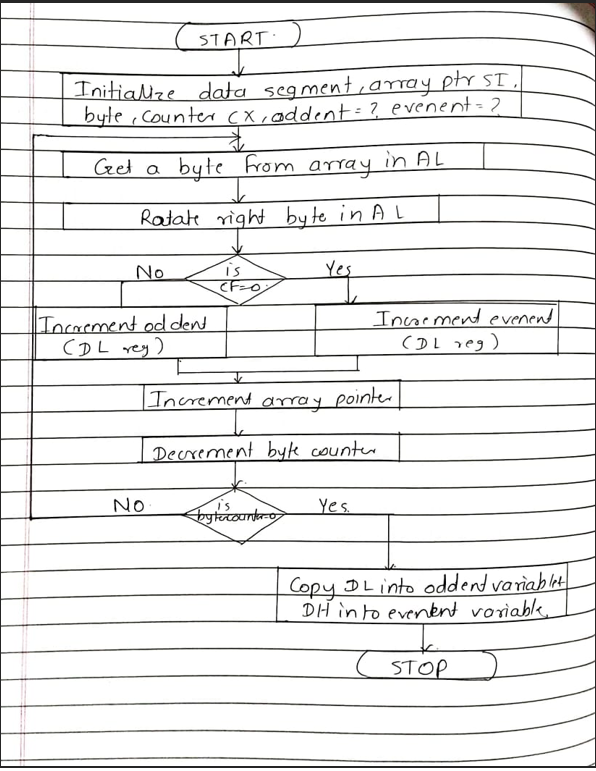 START.
Initialize data segment, array ptr SI,
byte, counter CX, oddcnt = ? evencnt = ?
Get a byte from array in AL
Rotate right byte in AL
No
is
CF=0.
Yes
Increment oddcnt
(DL reg)
Increment evencnt
(DL reg)
Increment array pointer
Decrement byte counter
NO
is
bytecounter=0
Yes.
Copy DL into oddcnt variable &
DH into evencnt variable
STOP